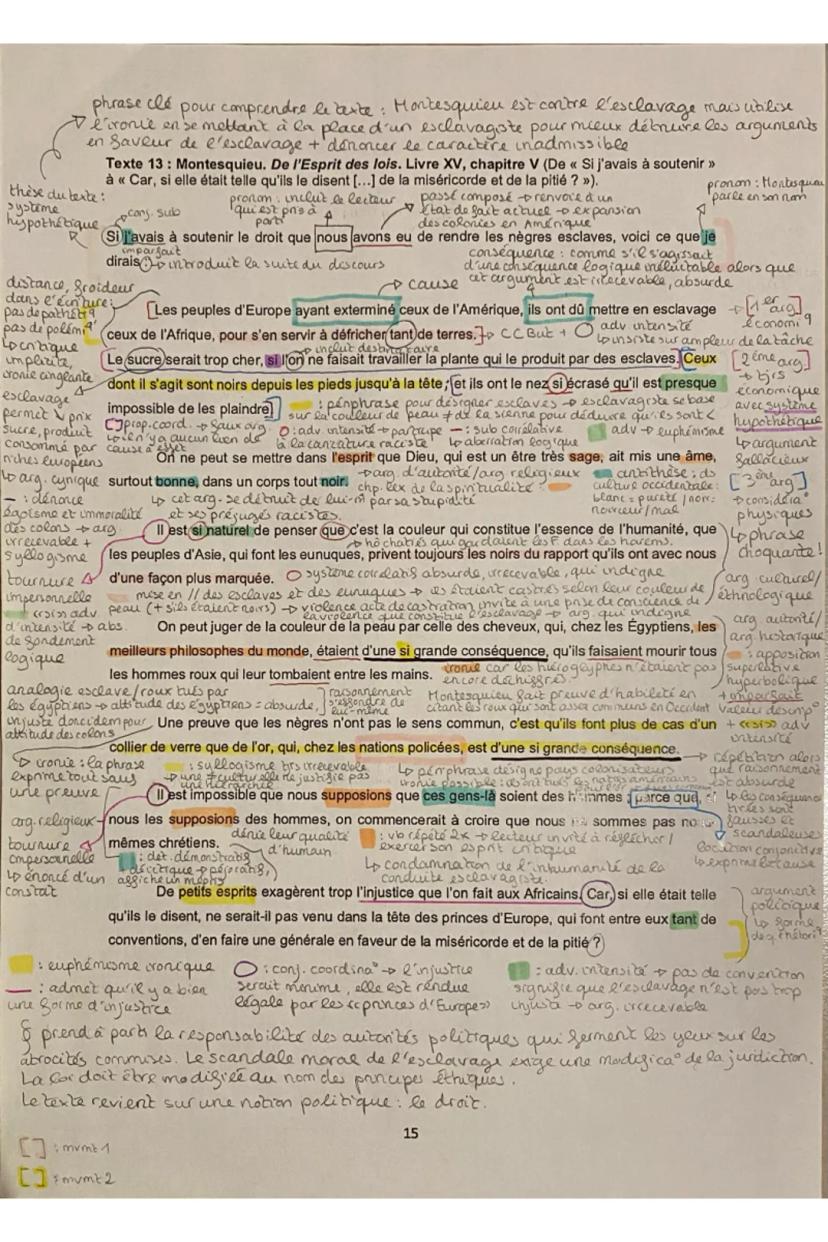 phrase clé pour comprendre le texte : Montesquieu est contre l'esclavage mais utilise
l'ironie en se mettant à la place d'un esclavagiste pour mieux détruire les arguments
en faveur de l'esclavage + dénoncer le caractère inadmissible
Texte 13 : Montesquieu. De l'Esprit des lois. Livre XV, chapitre V (De « Si j'avais à soutenir »
à « Car, si elle était telle qu'ils le disent [...] de la miséricorde et de la pitié ? »).
thèse du texte :
système
hypothétique
conj. sub
pronom : inclut le lecteur
qui est pris à
parti
passé composé → renvoie à un
état de fait actuel → expansion
des colonies en Amérique
pronom : Montesquieu
parle en son nom
Si j'avais à soutenir le droit que nous avons eu de rendre les nègres esclaves, voici ce que je
imparfait
dirais : → introduit la suite du discours
conséquence : comme s'il s'agissait
d'une conséquence logique inéluctable alors que
cet argument est irrecevable, absurde
cause
distance, froideur
dans l'écriture :
pas de pathétiq
pas de polémiq
↳ critique
implicite,
ironie cinglante
[Les peuples d'Europe ayant exterminé ceux de l'Amérique, ils ont dû mettre en esclavage
ceux de l'Afrique, pour s'en servir à défricher tant de terres.] → CC But + O adv intensité
↳ insiste sur ampleur de la tâche
→ [1er arg]
économiq
inclut destinataire
Le sucre serait trop cher, si l'on ne faisait travailler la plante qui le produit par des esclaves. [Ceux
dont il s'agit sont noirs depuis les pieds jusqu'à la tête ; et ils ont le nez si écrasé qu'il est presque
impossible de les plaindre]
[2ème arg]
→ tjrs
économique
avec système
hypothétique
↳ argument
fallacieux
esclavage
permet ↘ prix
sucre, produit
consommé par
riches européens
↳ arg. cynique
: périphrase pour désigner esclaves → esclavagiste se base
sur la couleur de peau ≠ de la sienne pour déduire qu'ils sont <
prop. coord. → faux arg
↳ il n'y a aucun lien de
cause à effet
O : adv intensité → participe
à la caricature raciste !
— : sub corrélative
↳ aberration logique
adv → euphémisme
On ne peut se mettre dans l'esprit que Dieu, qui est un être très sage, ait mis une âme,
surtout bonne, dans un corps tout noir.
→ arg. d'autorité/arg religieux
chp. lex de la spiritualité :
antithèse : ds
culture occidentale :
blanc : pureté / noir :
noirceur/mal
[3ème arg]
→ considéra°
physiques
— : dénonce
égoïsme et immoralité
des colons → arg
irrecevable +
syllogisme
↳ cet arg. se détruit de lui-m̂ par sa stupidité
et ses préjugés racistes.
Il est si naturel de penser que c'est la couleur qui constitue l'essence de l'humanité, que
↳ ho châtrés qui gardaient les F dans les harems.
les peuples d'Asie, qui font les eunuques, privent toujours les noirs du rapport qu'ils ont avec nous
d'une façon plus marquée. O système corrélatif absurde, irrecevable, qui indigne
↳ phrase
choquante !
arg culturel/
ethnologique
tournure
impersonnelle
+ «si» adv.
d'intensité → abs.
de fondement
logique
mise en // des esclaves et des eunuques → ces étaient castrés selon leur couleur de
peau (+ s'ils étaient noirs) → violence acte de castration invite à une prise de conscience de
la violence que constitue l'esclavage → arg. qui indigne
On peut juger de la couleur de la peau par celle des cheveux, qui, chez les Égyptiens, les
meilleurs philosophes du monde, étaient d'une si grande conséquence, qu'ils faisaient mourir tous
les hommes roux qui leur tombaient entre les mains.
ironie car les hiéroglyphes n'étaient pas
encore déchiffrés.
arg autorité/
arg historique
: apposition
superlative
hyperbolique
+ imparfait
valeur descrip°
+ «si» adv
intensité
analogie esclave/roux tués par
les égyptiens → attitude des égyptiens = absurde,
injuste donc idem pour
attitude des colons
raisonnement
s'effondre de
lui-même
Montesquieu fait preuve d'habileté en
citant les roux qui sont assez communs en Occident
Une preuve que les nègres n'ont pas le sens commun, c'est qu'ils font plus de cas d'un
collier de verre que de l'or, qui, chez les nations policées, est d'une si grande conséquence.
→ répétition alors
que raisonnement
est absurde
↳ les conséquences
tirées sont
fausses et
scandaleuses
↳ ironie : la phrase
exprime tout sauf
une preuve
: syllogisme trs irrecevable
→ une ≠ culturelle ne justifie pas
une hiérarchie
↳ périphrase désigne pays colonisateurs
Il est impossible que nous supposions que ces gens-là soient des hommes ; parce que, si
nous les supposions des hommes, on commencerait à croire que nous ne sommes pas nous-
mêmes chrétiens.
arg. religieux
tournure
impersonnelle
↳ énoncé d'un
constat
: dét. démonstratif
+ déictique → péjoratif,
affiche un mépris
dénie leur qualité
d'humain
: vb répété 2x → lecteur invité à réfléchir /
exercer son esprit critique
↳ condamnation de l'inhumanité de la
conduite esclavagiste
locution conjonctive
↳ exprime la cause
De petits esprits exagèrent trop l'injustice que l'on fait aux Africains. Car, si elle était telle
qu'ils le disent, ne serait-il pas venu dans la tête des princes d'Europe, qui font entre eux tant de
conventions, d'en faire une générale en faveur de la miséricorde et de la pitié ?
argument
politique
↳ forme
de q rhétori°
: euphémisme ironique
— : admet qu'il y a bien
une forme d'injustice
O : conj. coordina° → l'injustice
serait minime, elle est rendue
légale par les «princes d'Europe»
: adv. intensité → pas de convention
signifie que l'esclavage n'est pas trop
injuste → arg. irrecevable
§ prend à parti la responsabilité des autorités politiques qui ferment les yeux sur les
atrocités commises. Le scandale moral de l'esclavage exige une modifica° de la juridiction.
La loi doit être modifiée au nom des principes éthiques.
Le texte revient sur une notion politique : le droit.
15
[ ] : mvmt 1
[ ] : mvmt 2